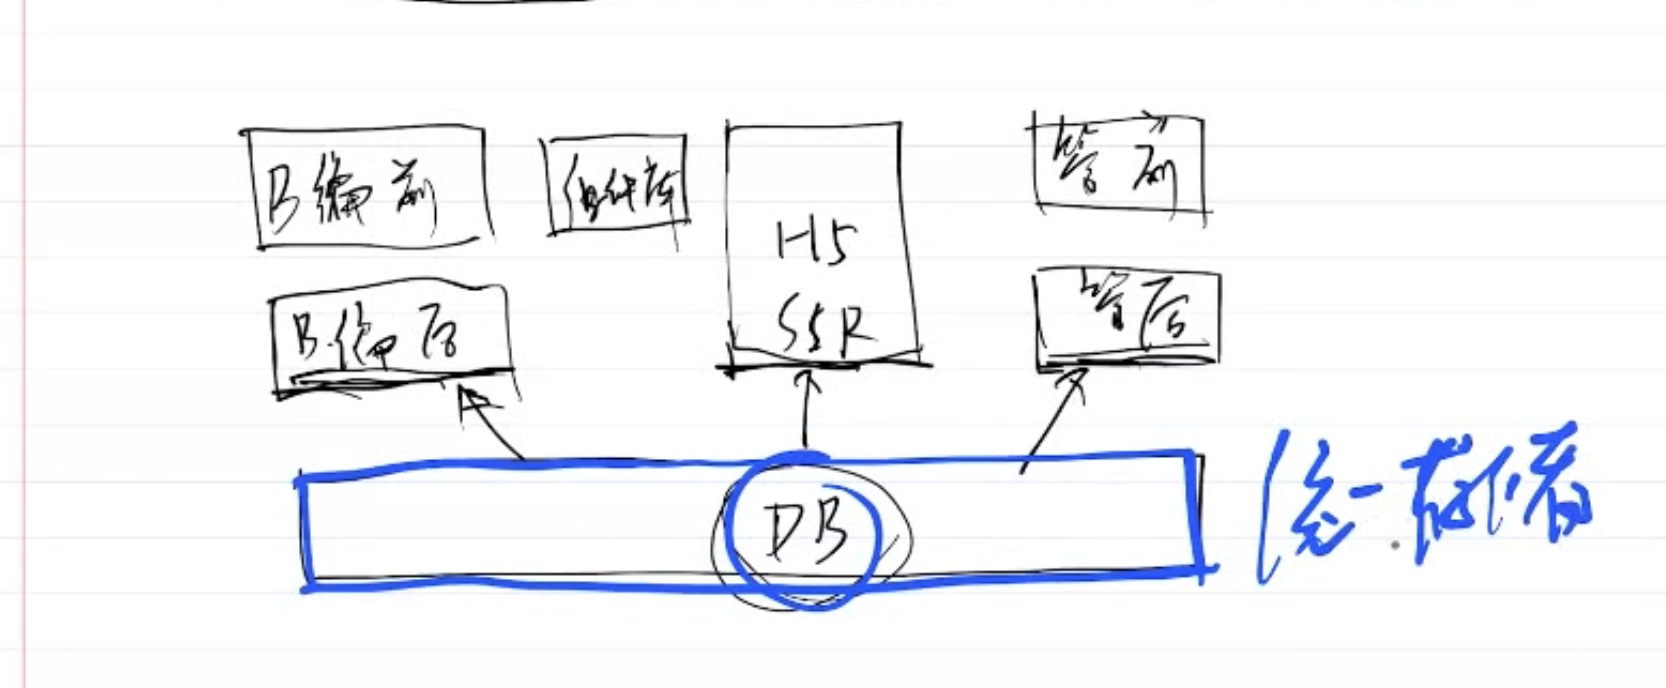 B编前
组件库
H5
SSR
管前
B编后
管后
DB
统一存储